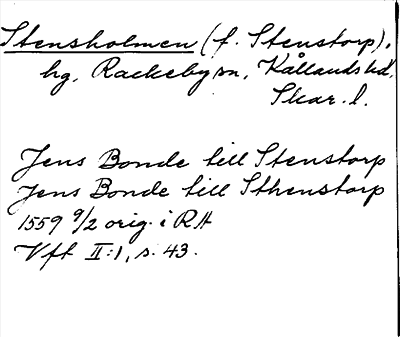 Stensholmen (f. Stenstorp),
hg, Rackeby sn, Kållands hd,
Skar. l.
Jens Bonde till Stenstorp
Jens Bonde till Sthenstorp
1559 9/2 orig. i RA
Vff II:1, s. 43.